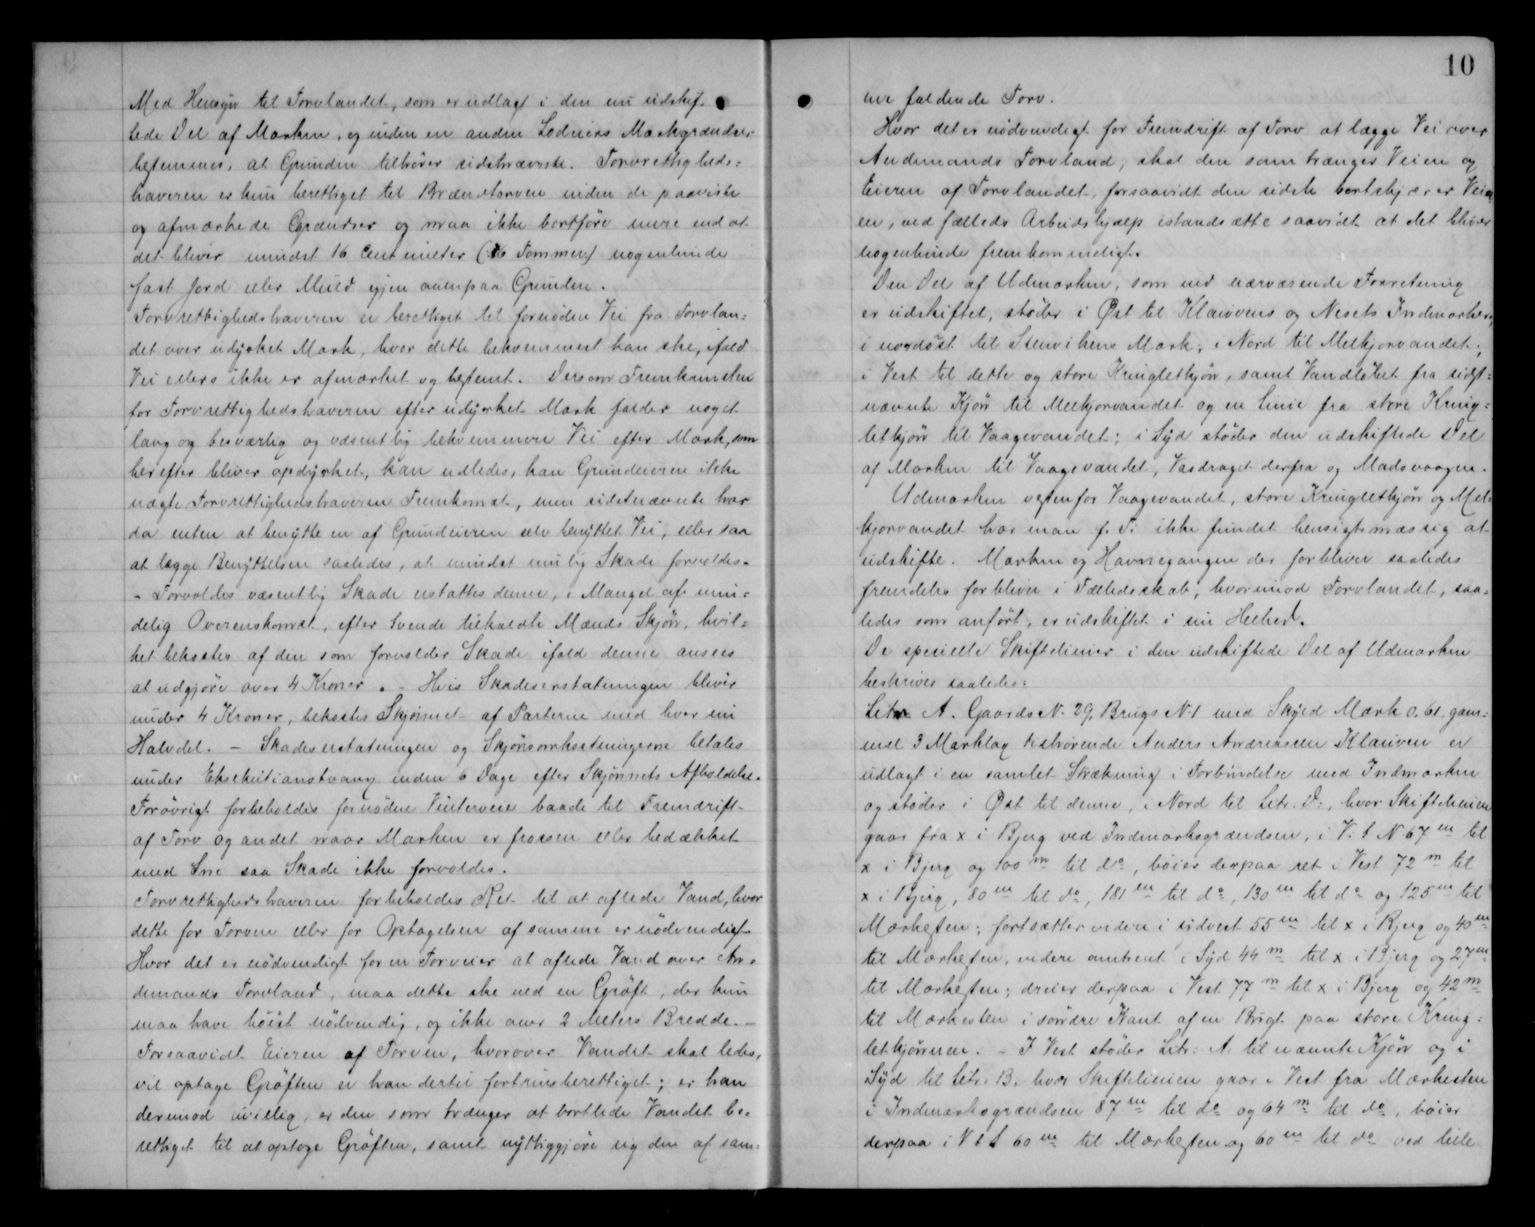 Med Hensyn til Torvlandet, som er udlagt i den nu udskif-
tede Del af Marken, og inden en anden Lodeiers Markgrændser
bestemmes, at Grunden tilhører sidstnævnte. Torvrettigheds-
haveren er kun berettiget til Brændetorven inden de paaviste
og afmærkede Grændser og maa ikke bortføre mere end at
det bliver mindst 16 Centimeter (6 Tommer) nogenlunde
fast Jord eller Muld igjen ovenpaa Grunden.
Torvrettighedshaveren er berettiget til fornøden Vei fra Torvlan-
det over udyrket Mark, hvor dette bekvemmest kan ske, ifald
Vei ellers ikke er afmærket og bestemt. Dersom Fremkomsten
for Torvrettighedshaveren efter udyrket Mark falder noget
lang og besværlig og væsentlig bekvemmere Vei efter Mark, som
herefter bliver opdyrket, kan udledes, kan Grundeieren ikke
nægte Torvrettighedshaveren Fremkomst, men sidstnævnte har
da enten at benytte en af Grundeieren selv benyttet Vei, eller saa
at lægge Benyttelsen saaledes, at mindst mulig Skade forvoldes.
- Forvoldes væsentlig Skade erstattes denne, i Mangel af min-
delig Overenskomst, efter tvende tilkaldte Mænds Skjøn, hvil-
ket bekostes af den som forvolder Skade ifald denne ansees
at udgjøre over 4 Kroner. - Hvis Skadeserstatningen bliver
under 4 Kroner, bekostes Skjønnet af Parterne med hver sin
Halvdel. - Skadeserstatningen og Skjønsomkostningerne betales
under Eksekutionstvang inden 6 Dage efter Skjønnets Afholdelse.
Forøvrigt forbeholdes fornødne Vinterveie baade til Fremdrift
af Torv og andet naar Marken er frossen eller bedækket
med Sne saa Skade ikke forvoldes.
Torvrettighedshaveren forbeholdes Ret til at aflede Vand, hvor
dette for Torven eller for Optagelsen af samme er nødvendigt.
Hvor det er nødvendigt for en Torveier at aflede Vand over An-
demands Torvland, maa dette ske ved en Grøft, der kun
maa have høist nødvendig, og ikke over 2 Meters Bredde. -
Forsaavidt Eieren af Torven, hvorover Vandet skal ledes,
vil optage Grøften er han dertil fortrinsberettiget; er han
derimod uvillig, er den som trænger at bortlede Vandet be-
rettiget til at optage Grøften, samt nyttiggjøre sig den af sam-
10
me faldende Torv.
Hvor det er nødvendigt for Fremdrift af Torv at lægge Vei over
Andemands Torvland, skal den som trænger Veien og
Eieren af Torvlandet, forsaavidt den sidste bortskjærer Vei-
en, ved fælleds Arbeidshjælp istandsætte saavidt at det bliver
nogenlunde fremkommeligt.
Den Del af Udmarken, som ved nærværende Forretning
er udskiftet, støder i Øst til Klauvens og Nesets Indmarker,
i nordøst til Stenvikens Mark; i Nord til Melkjorvandet;
i Vest til dette og store Kringletkjøn, samt Vandløbet fra sidst-
nævnte Kjøn til Melkjorvandet og en Linie fra store Kring-
letkjøn til Vaagevandet; i Syd støder den udskiftede Del
af Marken til Vaagevandet, Vasdraget derfra og Madsvaagen.
Udmarken vestenfor Vaagevandet, store Kringletkjøn og Mel-
kjorvandet har man f. T. ikke fundet hensigtsmæssig at
udskifte. Marken og Havnegangen der forbliver saaledes
fremdeles forbliver i Fælledsskab; hvorimod Torvlandet, saa-
ledes som anført, er udskiftet i sin Helhed.
De specielle Skiftelinier i den udskiftede Del af Udmarken
beskrives saaledes:
Litr A. Gaards N. 29, Brugs N. 1 med Skyld Mark 0.61, gam-
mel 3 Marklag tilhørende Anders Andreassen Klauven er
udlagt i en samlet Strækning i Forbindelse med Indmarken
og støder i Øst til denne, i Nord til Litr. D., hvor Skiftelinien
gaar fra x i Bjerg ved Indmarksgrændsen, i V. t. N. 67 m til
x i Bjerg og 100 m til do, bøier derpaa ret i Vest 72 m til
x i Bjerg, 80 m til do, 181 m til do, 130 m til do og 125 m til
Mærkesten; fortsætter videre i sidvest 55 m til x i Bjerg og 40 m
til Mærkesten, videre omtrent i Syd 44 m til x i Bjerg og 27 m
til Mærkesten; dreier derpaa i Vest 77 m til x i Bjerg og 42 m
til Mærkesten i søndre Kant af en Bugt paa store Kring-
letkjønnen. - I Vest støder Litr. A. til nævnte Kjøn og i
Syd til Litr. B. hvor Skiftelinien gaar i Vest fra Mærkesten
i Indmarksgrændsen 87 m til do og 64 m til do, bøier
derpaa i V t S 60 m til Mærkesten og 60 m til do ved lille